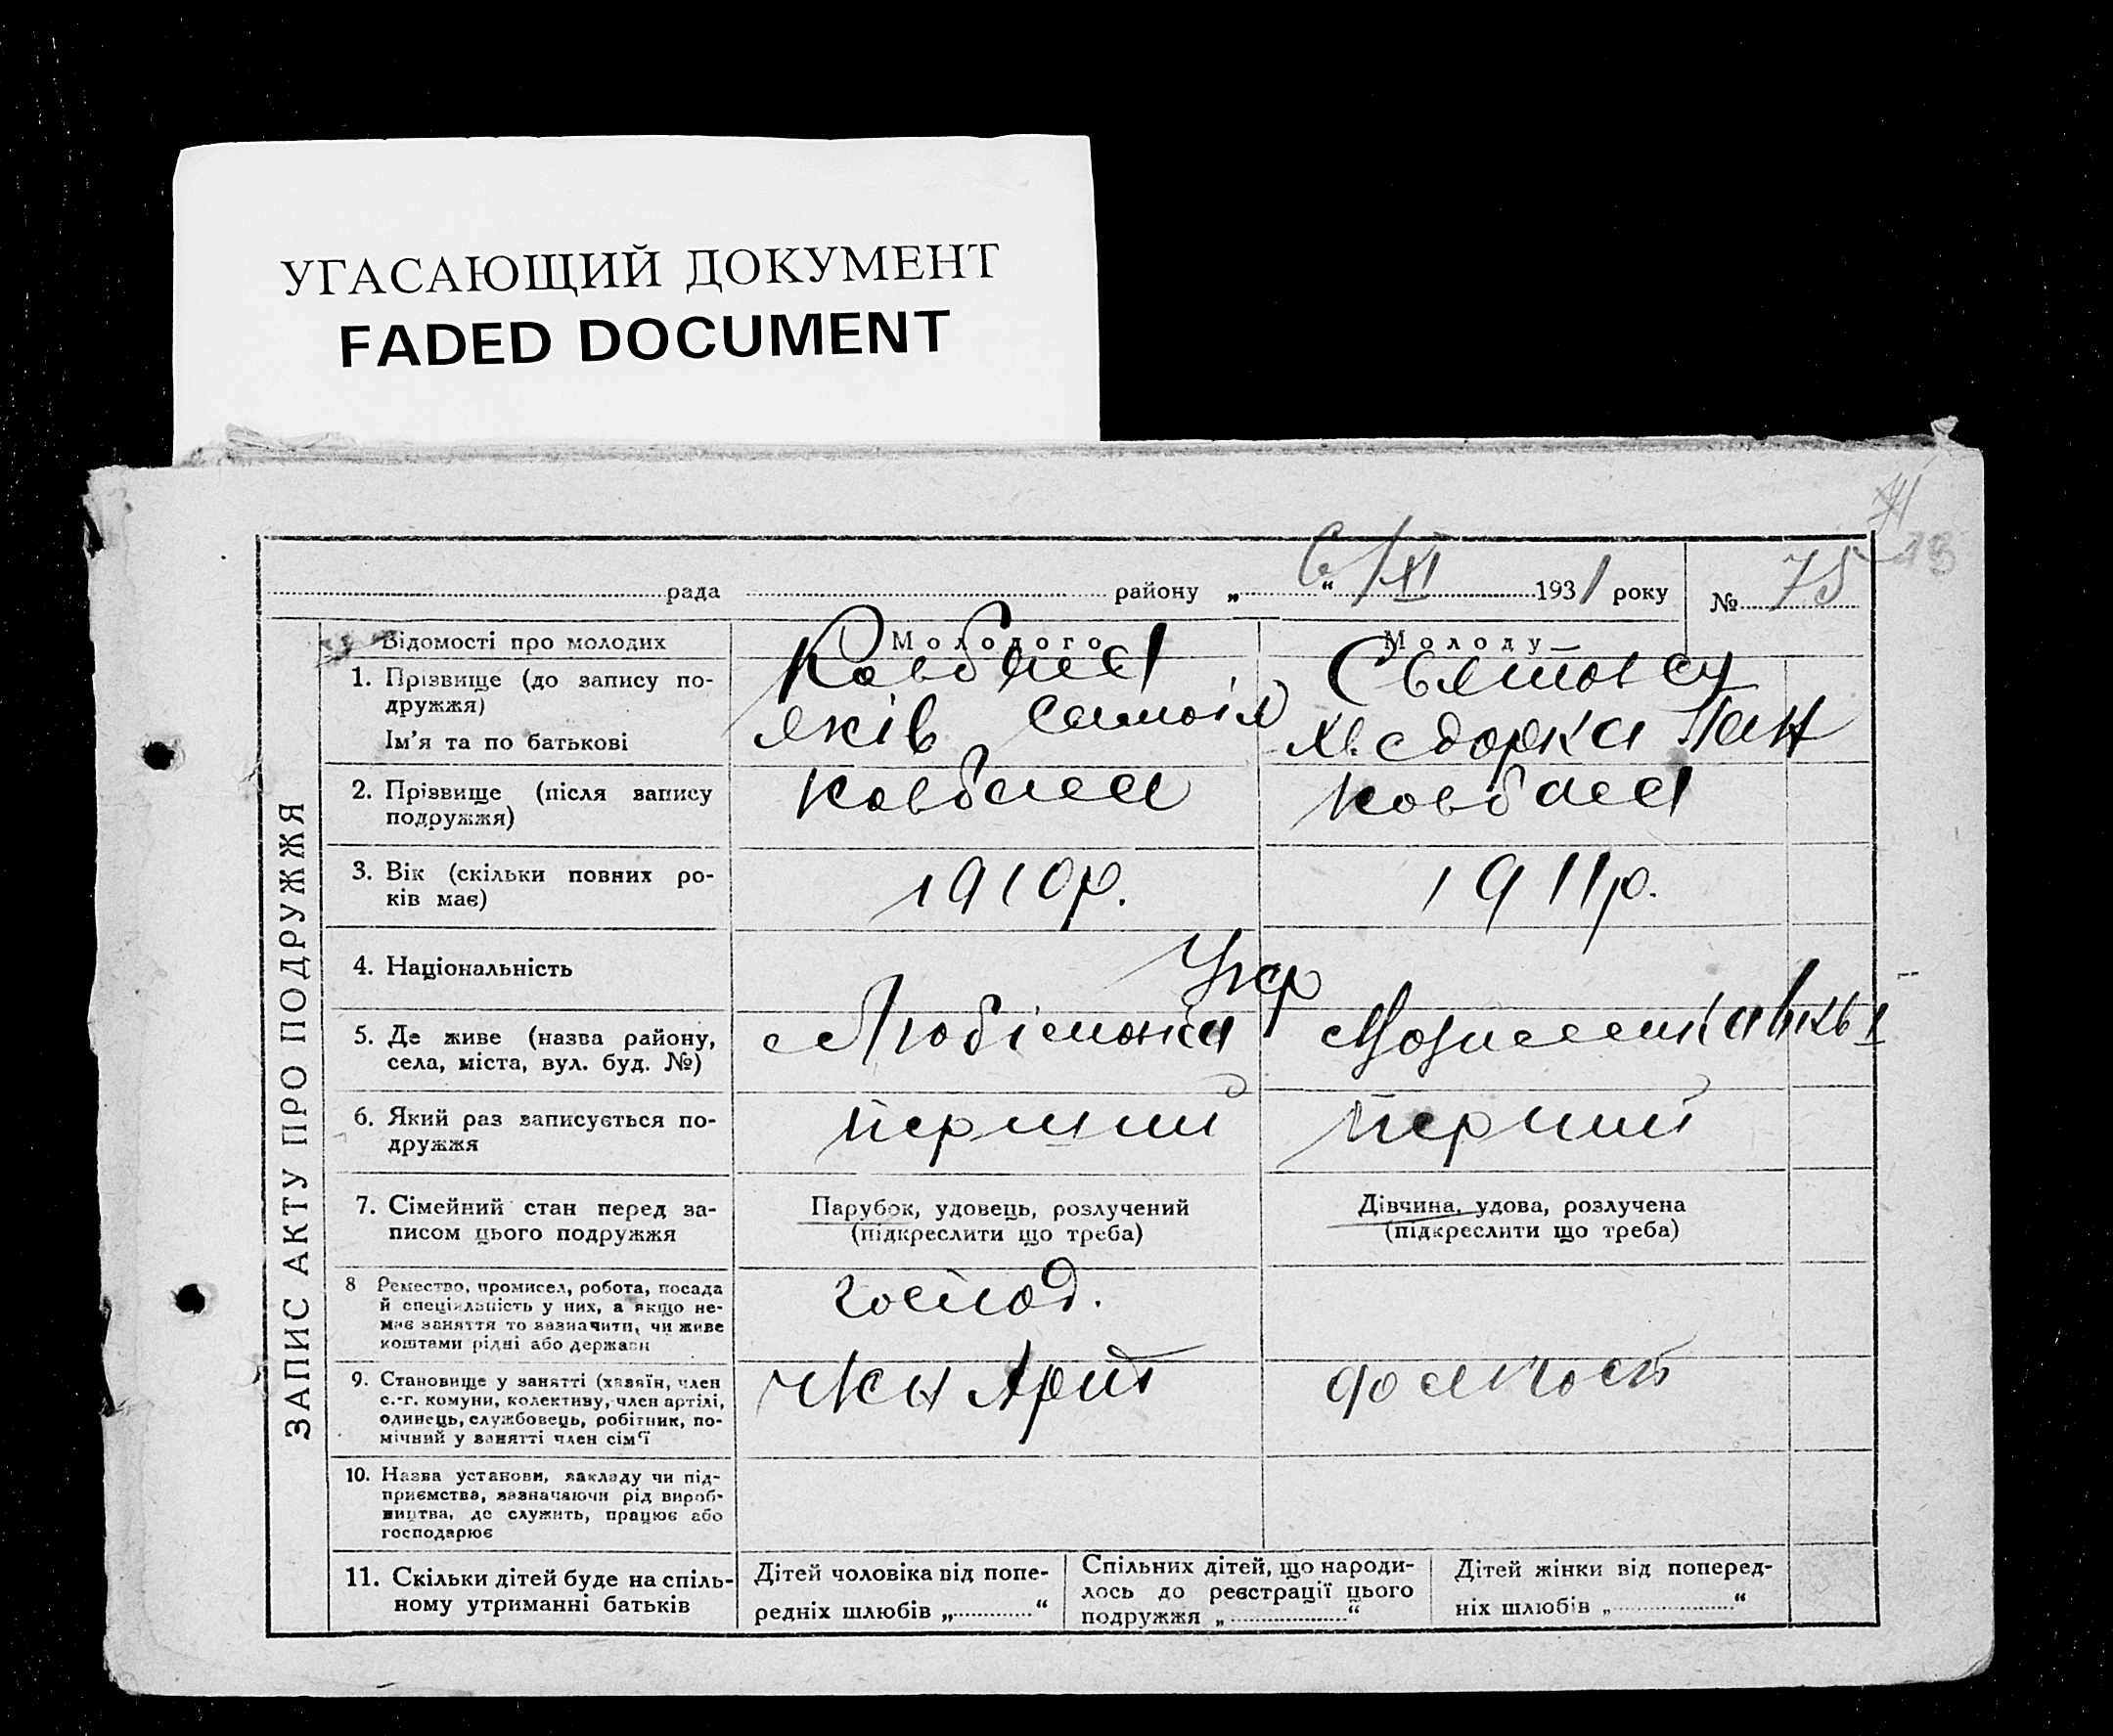 УГАСАЮЩИЙ ДОКУМЕНТ
FADED DOCUMENT
рада района „ 6 “ /XI 1931 року № 75
ЗАПИС АКТУ ПРО ПОДРУЖЖЯ
Відомості про молодих
Молодого
Молоду
1. Прізвище (до запису по-
дружжя)
Ім'я та по батькові
Ковбаса
Яків Самойл
Хведорка Пан
2. Прізвище (після запису
подружжя)
Ковбаса
Ковбаса
3. Вік (скільки повних ро-
ків має)
1910р.
1911р.
4. Національність
Укр
5. Де живе (назва району,
села, міста, вул. буд. №)
Любімовка
6. Який раз записується по-
дружжя
перший
перший
7. Сімейний стан перед за-
писом цього подружжя
Парубок, удовець, розлучений
(підкреслити що треба)
Дівчина, удова, розлучена
(підкреслити що треба)
8 Ремество, промисел, робота, посада
й спеціяльність у них, а якщо не-
має заняття то зазначити, чи живе
коштами рідні або держави
господ.
9. Становище у занятті (хазяїн, член
с.-г. комуни, колективу, член артілі,
одинець, службовець, робітник, по-
мічний у занятті член сім'ї
10. Назва установи, закладу чи під-
приємства, зазначаючи рід вироб-
ництва, де служить, працює або
господарює
11. Скільки дітей буде на спіль-
ному утриманні батьків
Дітей чоловіка від попе-
редніх шлюбів „ “
Спільних дітей, що народи-
лось до реєстрації цього
подружжя „ “
Дітей жінки від поперед-
ніх шлюбів „ “